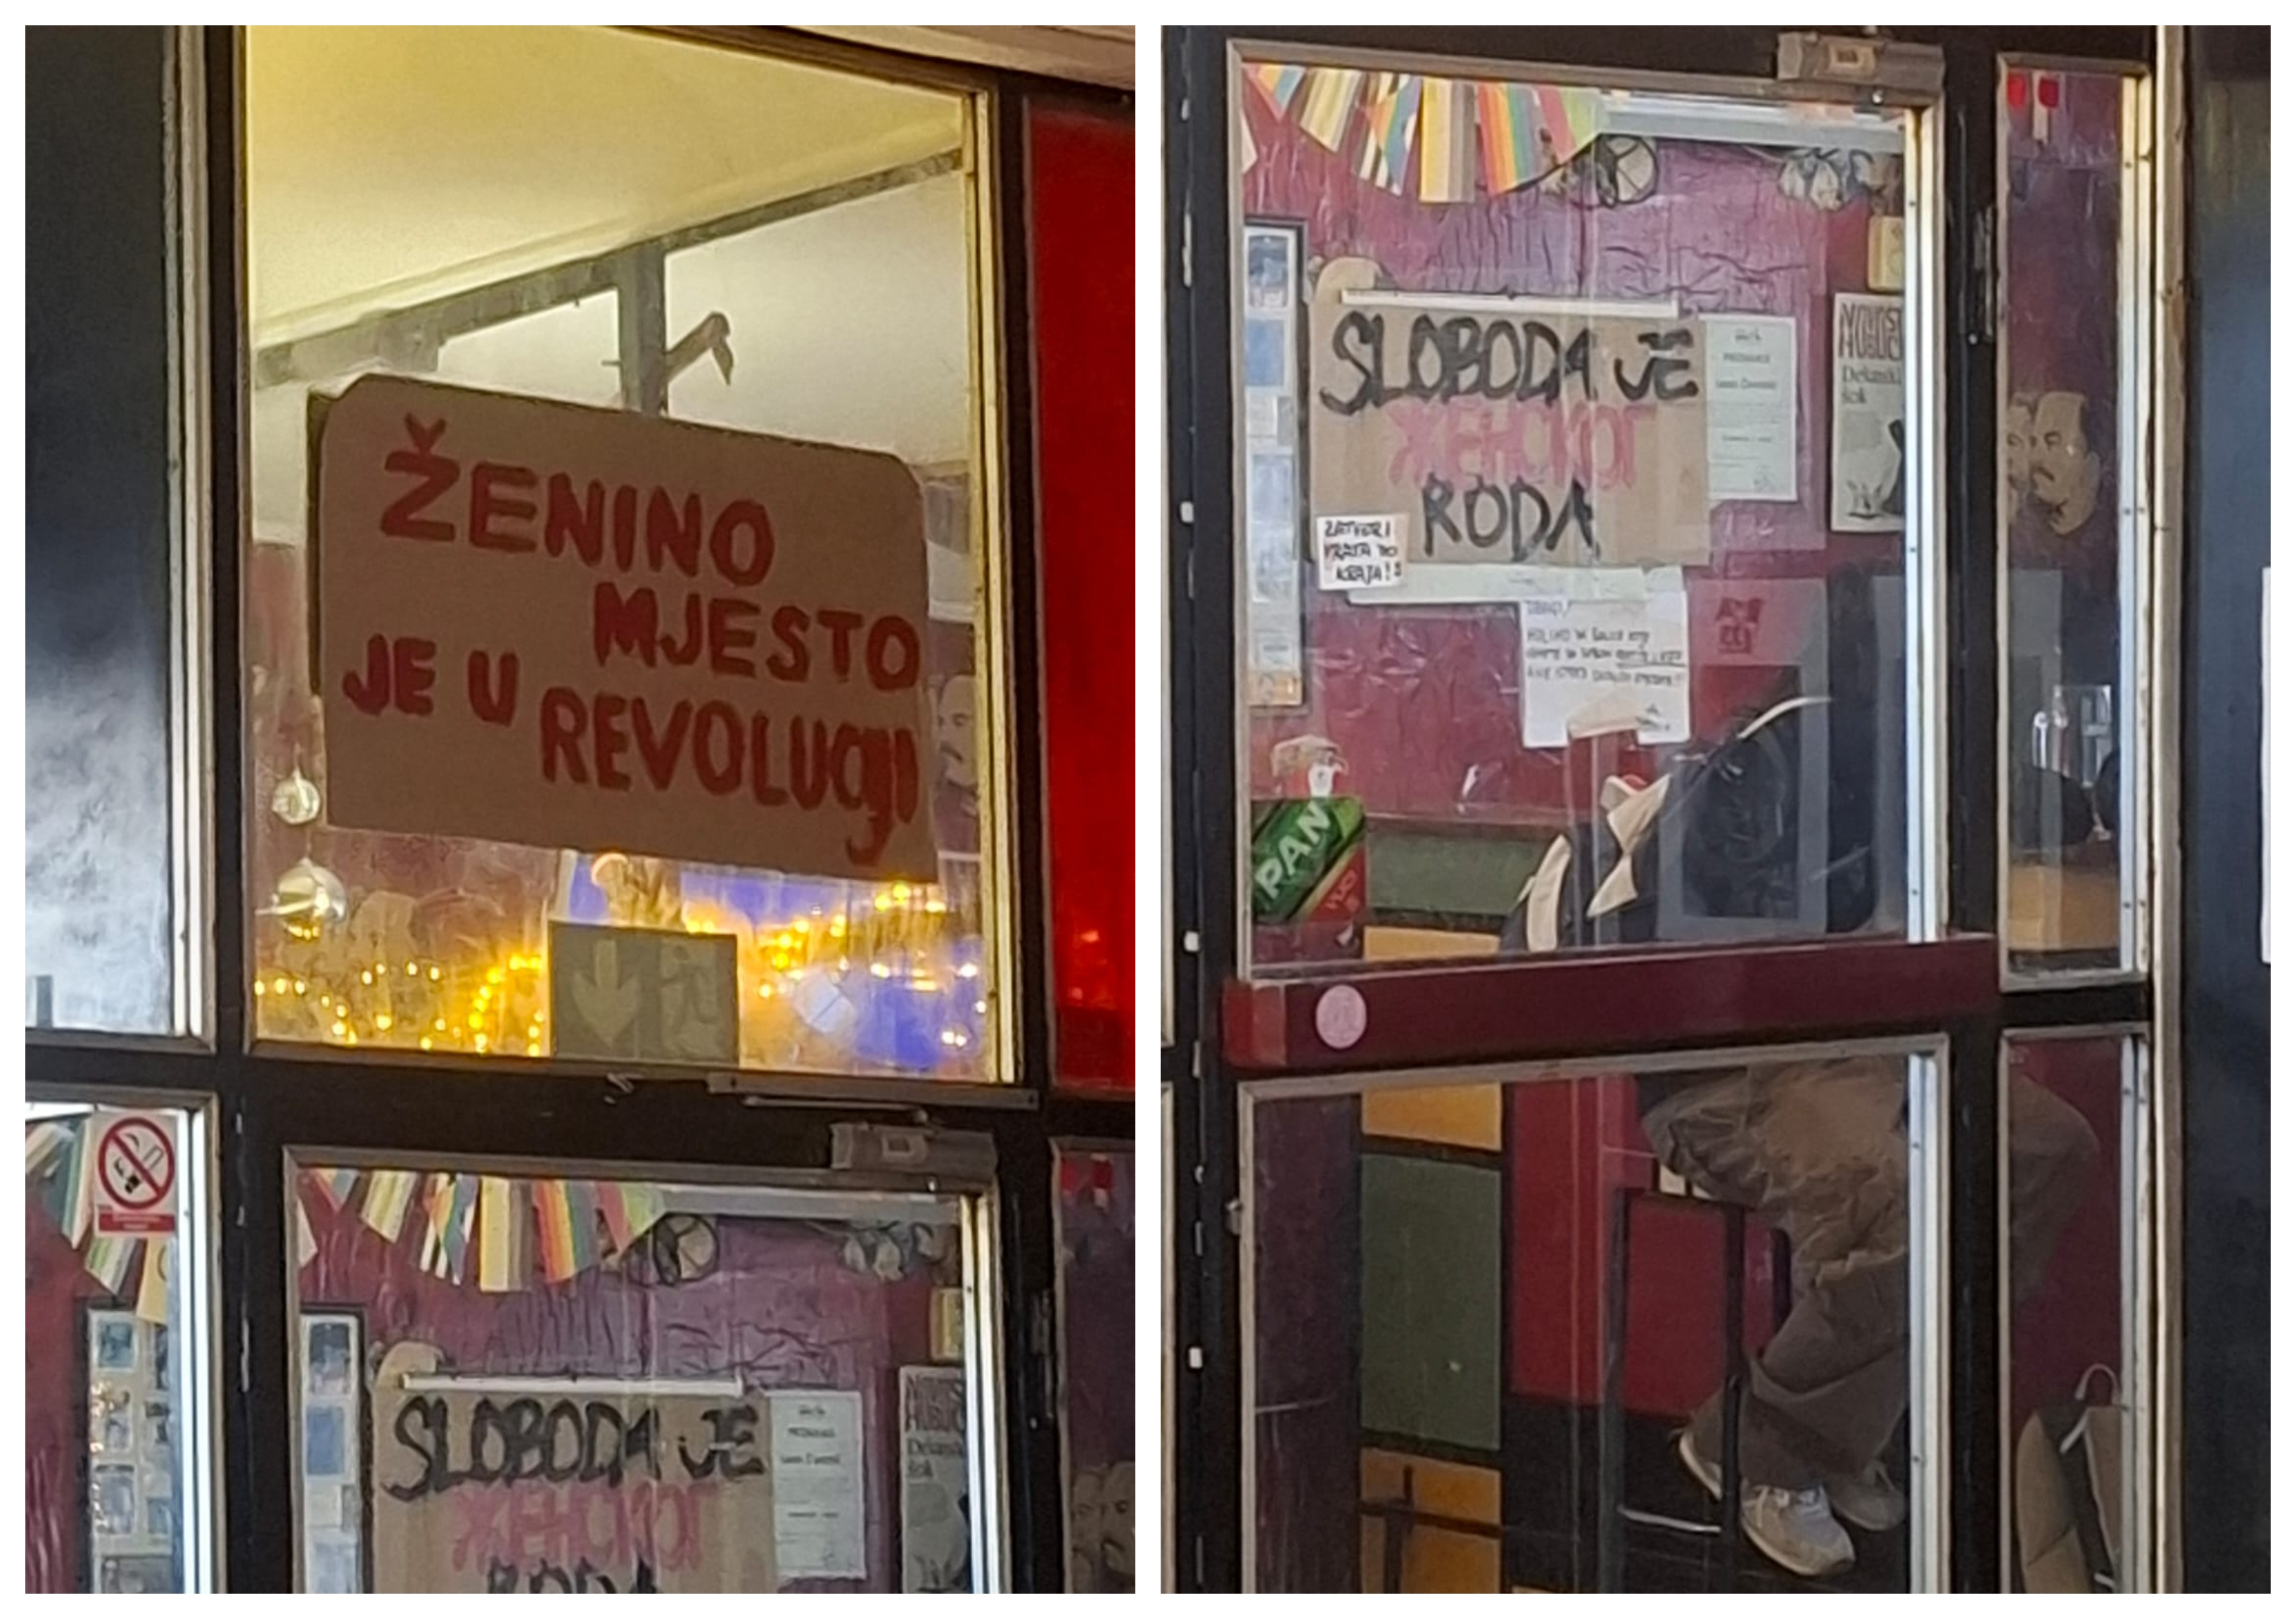 ŽENINO
MJESTO
JE U
REVOLUCIJI
SLOBODA JE
ЖЕНСКОГ
SLOBODA JE
ЖЕНСКОГ
RODA
ZATVORI
VRATA DO
KRAJA!
PAN
Dekanski